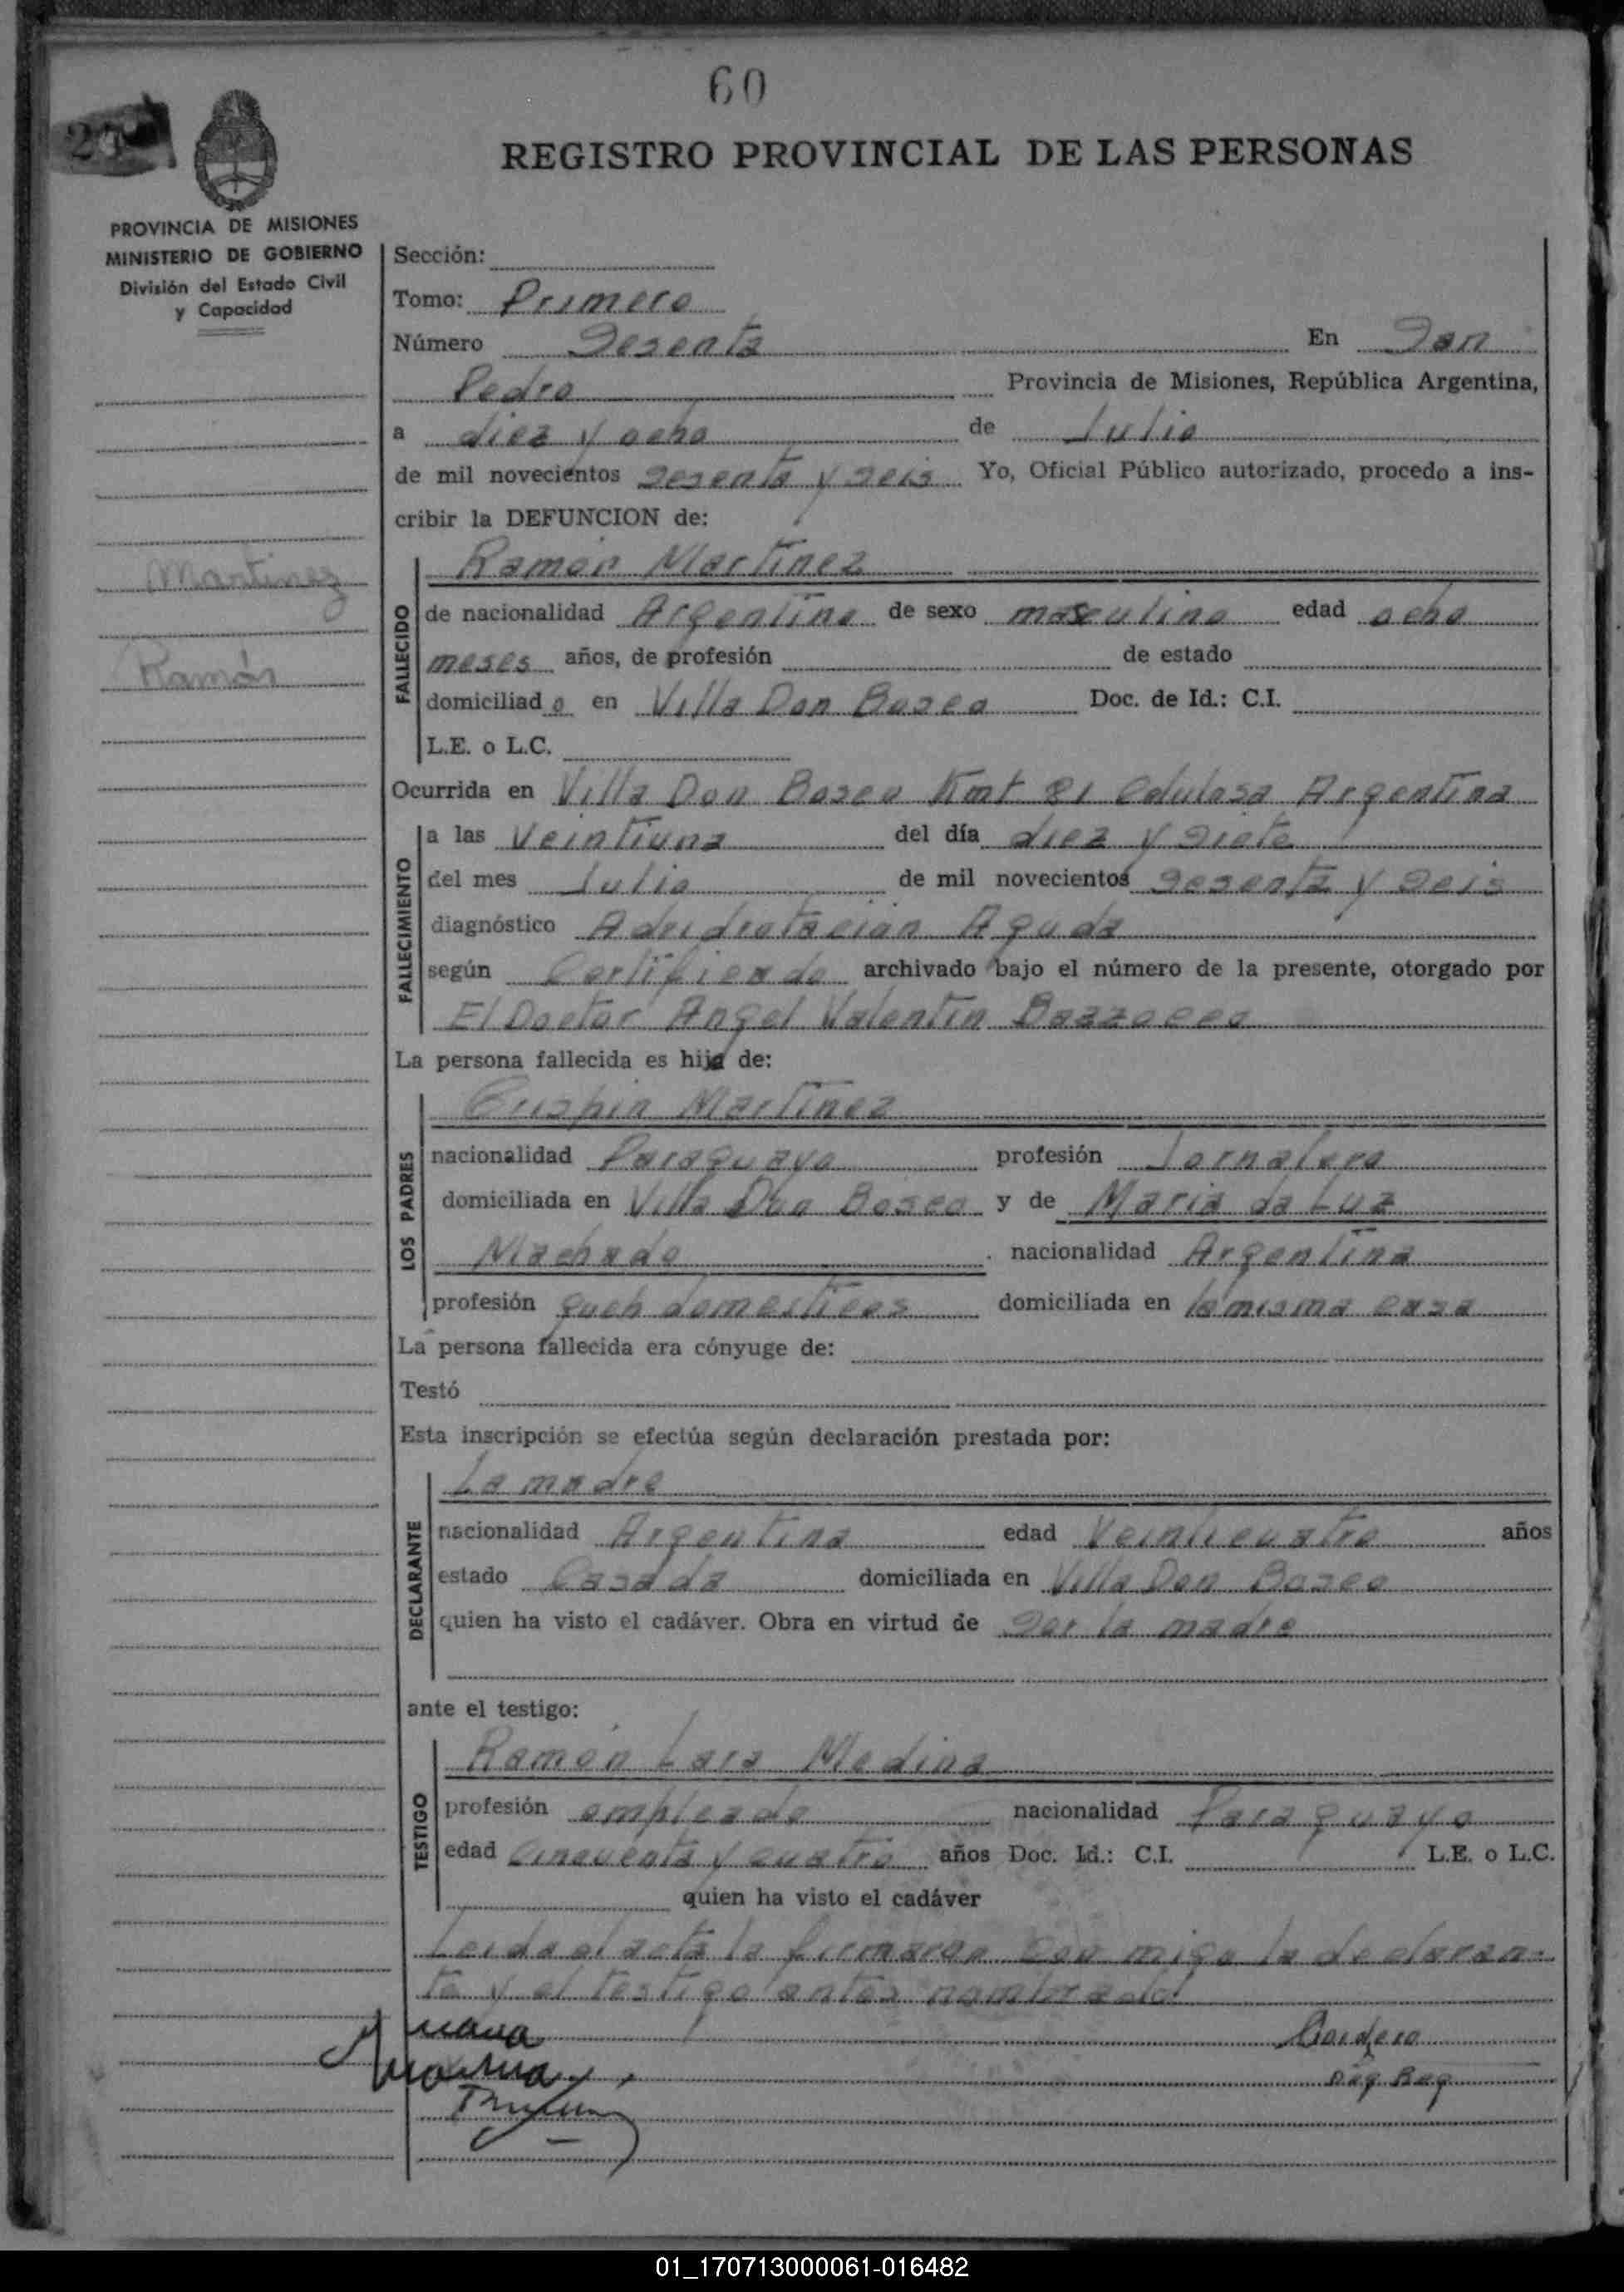 60
REGISTRO PROVINCIAL DE LAS PERSONAS
PROVINCIA DE MISIONES
MINISTERIO DE GOBIERNO
División del Estado Civil
y Capacidad
Martinez
Ramón
Sección:
Tomo: Primero
Número Sesenta En San
Pedro Provincia de Misiones, República Argentina,
a diez y ocho de Julio
de mil novecientos sesenta y seis Yo, Oficial Público autorizado, procedo a ins-
cribir la DEFUNCION de:
FALLECIDO
Ramón Martinez
de nacionalidad Argentino de sexo masculino edad ocho
meses años, de profesión de estado
domiciliado en Villa Don Bosco Doc. de Id.: C.I.
L.E. o L.C.
Ocurrida en Villa Don Bosco Kmt 81 Celulosa Argentina
FALLECIMIENTO
a las Veintiuna del día diez y siete
del mes Julio de mil novecientos sesenta y seis
diagnóstico Aguda
según Certificado archivado bajo el número de la presente, otorgado por
El Doctor Angel Valentin
La persona fallecida es hijo de:
LOS PADRES
Crispin Martinez
nacionalidad Paraguayo profesión Jornalero
domiciliada en Villa Don Bosco y de Maria da Luz
Machado nacionalidad Argentina
profesión domesticos domiciliada en la misma casa
La persona fallecida era cónyuge de:
Testó
Esta inscripción se efectúa según declaración prestada por:
DECLARANTE
La madre
nacionalidad Argentina edad Veinticuatro años
estado Casada domiciliada en Villa Don Bosco
quien ha visto el cadáver. Obra en virtud de ser la madre
ante el testigo:
TESTIGO
Ramón Lara Medina
profesión empleado nacionalidad Paraguayo
edad Cincuenta y cuatro años Doc. Id.: C.I. L.E. o L.C.
quien ha visto el cadáver
Leida el acta la firmaron con migo la declaran-
te y el testigo antes nombrado
01_170713000061-016482